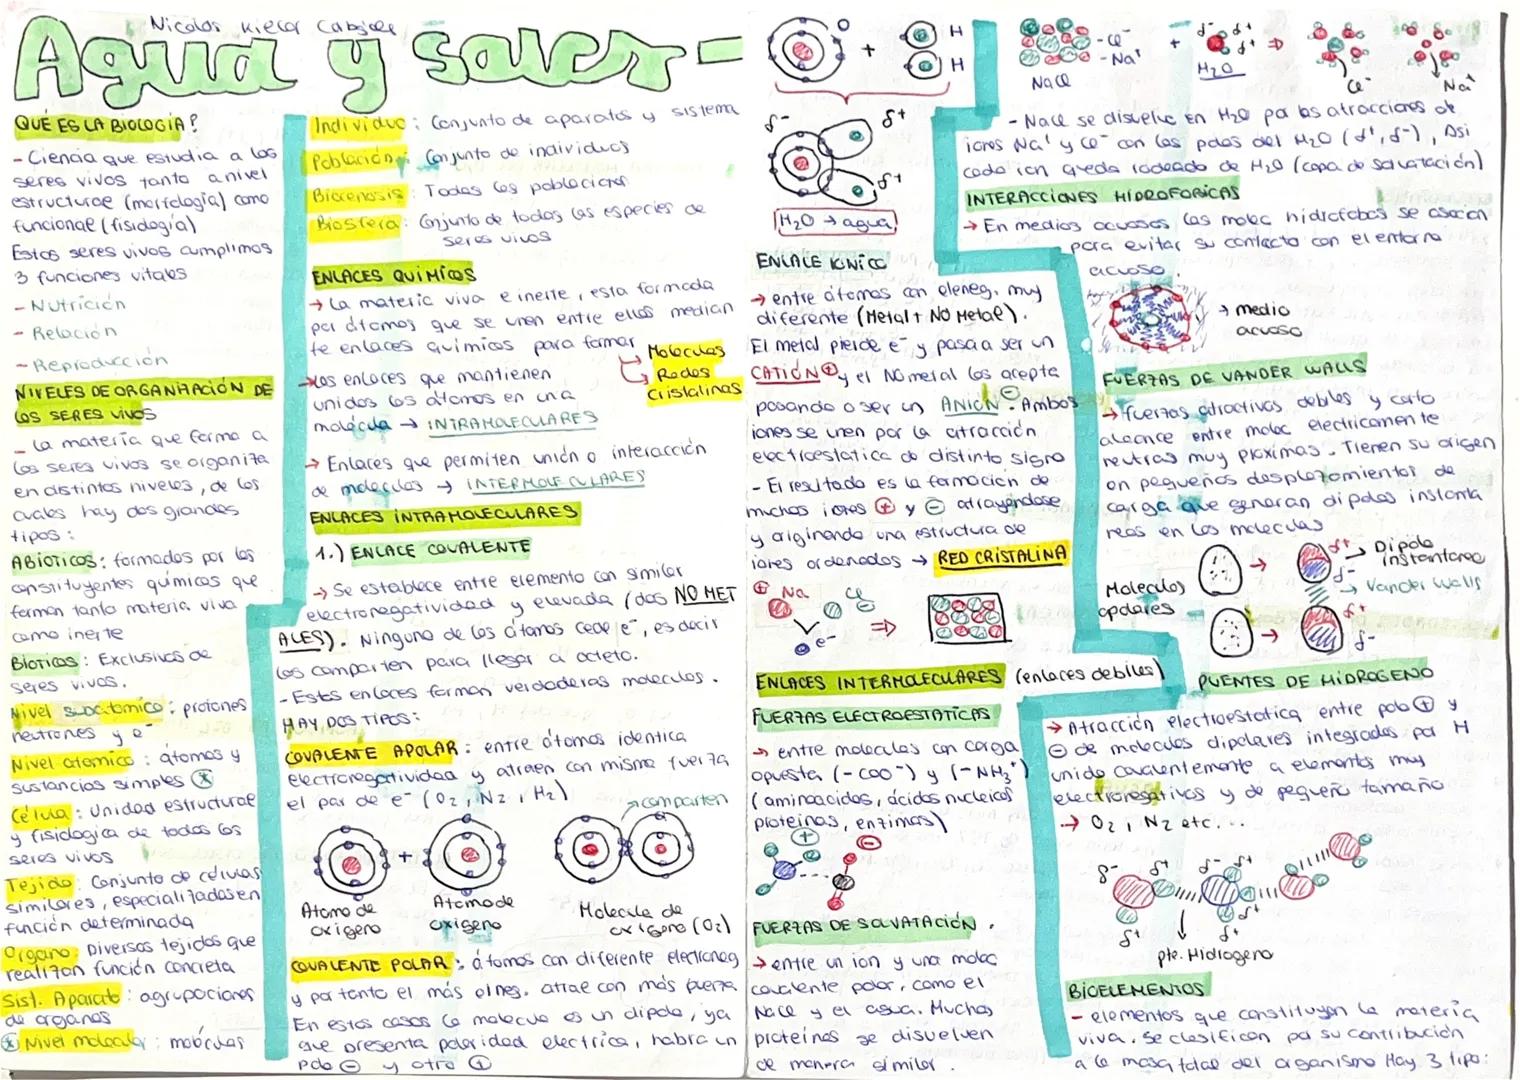 Nicolas Kiefer
Agua y sales
QUÉ ES LA BIOLOGÍA?
- Ciencia que estudia a los
seres vivos tanto a nivel
estructural (morfología) como
funcional (fisiología)
Estos seres vivos cumplimos
3 funciones vitales
- Nutrición
- Relación
- Reproducción
NIVELES DE ORGANIZACIÓN DE
LOS SERES VIVOS
- La materia que forma a
los seres vivos se organiza
en distintos niveles, de los
cuales hay dos grandes
tipos:
ABIÓTICOS: formados por los
constituyentes químicos que
forman tanto materia viva
como inerte
BIÓTICOS: Exclusivos de
seres vivos.
Nivel subatomico: protones
neutrones y e⁻
Nivel atomico: átomos y
sustancias simples *
Célula: Unidad estructural
y fisiologica de todos los
seres vivos
Tejido: Conjunto de células
similares, especializadas en
función determinada
Organo: Diversos tejidos que
realizan función concreta
Sist. Aparato: agrupaciones
de organos
* Nivel molecular: moléculas
Individuo: Conjunto de aparatos y sistema
Población: Conjunto de individuos
Biocenosis: Todas las poblaciones
Biosfera: Conjunto de todas las especies de
seres vivos
ENLACES QUÍMICOS
→ La materia viva e inerte, esta formada
por átomos que se unen entre ellos median
te enlaces químicos para formar
Moleculas
Redes
cristalinas
→ Los enlaces que mantienen
unidos los átomos en una
molécula → INTRAMOLECULARES
→ Enlaces que permiten unión o interacción
de moleculas → INTERMOLECULARES
ENLACES INTRAMOLECULARES
1.) ENLACE COVALENTE
→ Se establece entre elemento con similar
electronegatividad y elevada (dos NO MET
ALES). Ninguno de los átomos cede e⁻, es decir
los comparten para llegar al octeto.
- Estos enlaces forman verdaderas moleculas.
HAY DOS TIPOS:
COVALENTE APOLAR: entre átomos identica
electronegatividad y atraen con misma fuerza
el par de e⁻ (O₂, N₂, H₂)
comparten
+
Atomo de
oxigeno
Atomo de
oxigeno
Molecula de
oxigeno (O₂)
COVALENTE POLAR: átomos con diferente electroneg
y por tanto el más elneg. atrae con más fuerza
En estos casos la molecula es un dipolo, ya
que presenta polaridad electrica, habra un
polo ⊖ y otro ⊕
O
+
H
H
δ⁻
δ+
δ+
H₂O → agua
ENLACE IONICO
→ entre átomos con eleneg. muy
diferente (Metal + NO Metal).
El metal pierde e⁻ y pasa a ser un
CATIÓN⊕ y el NO metal los acepta
pasando a ser un ANIÓN⊖. Ambos
iones se unen por la atracción
electroestatica de distinto signo
- El resultado es la formacion de
muchos iones ⊕ y ⊖ atrayendose
y originando una estructura de
iones ordenados → RED CRISTALINA
⊕ Na
Cl ⊖
e⁻
⇒
ENLACES INTERMOLECULARES (enlaces debiles)
FUERZAS ELECTROESTATICAS
→ entre moleculas con carga
opuesta (-COO⁻) y (-NH₃⁺)
(aminoacidos, ácidos nucleicos
proteinas, enzimas)
⊕
⊖
FUERZAS DE SOLVATACIÓN.
→ entre un ion y una molec
covalente polar, como el
NaCl y el agua. Muchas
proteinas se disuelven
de manera similar.
- Cl⁻
- Na⁺
NaCl
+
δ⁻
δ+
δ+
H₂O
⇒
Cl⁻
Na⁺
- NaCl se disuelve en H₂O por las atracciones de
iones Na⁺ y Cl⁻ con los polos del H₂O (δ⁺, δ⁻), Asi
cada ion queda rodeado de H₂O (capa de solvatación)
INTERACCIONES HIDROFOBICAS
→ En medios acuosos las molec hidrofobas se asocian
para evitar su contacto con el entorno
acuoso.
→ medio
acuoso
FUERZAS DE VANDER WALLS
→ fuerzas atractivas debiles y corto
alcance entre molec electricamente
neutras muy proximas. Tienen su origen
en pequeños desplazamientos de
carga que generan dipolos instanta
neos en las moleculas
Moleculas
apolares
→
δ+
δ⁻
→ Dipolo
instantaneo
→ Vander Walls
→
δ+
δ⁻
PUENTES DE HIDROGENO
→ Atracción electroestatica entre polo ⊕ y
⊖ de moleculas dipolares integrados por H
unido covalentemente a elementos muy
electronegativos y de pequeño tamaño
→ O₂, N₂ etc...
δ⁻
δ+
δ⁻
δ+
δ+
δ+
δ+
pte. Hidrogeno
BIOELEMENTOS
- elementos que constituyen la materia
viva. Se clasifican por su contribución
a la masa total del organismo Hay 3 tipo: